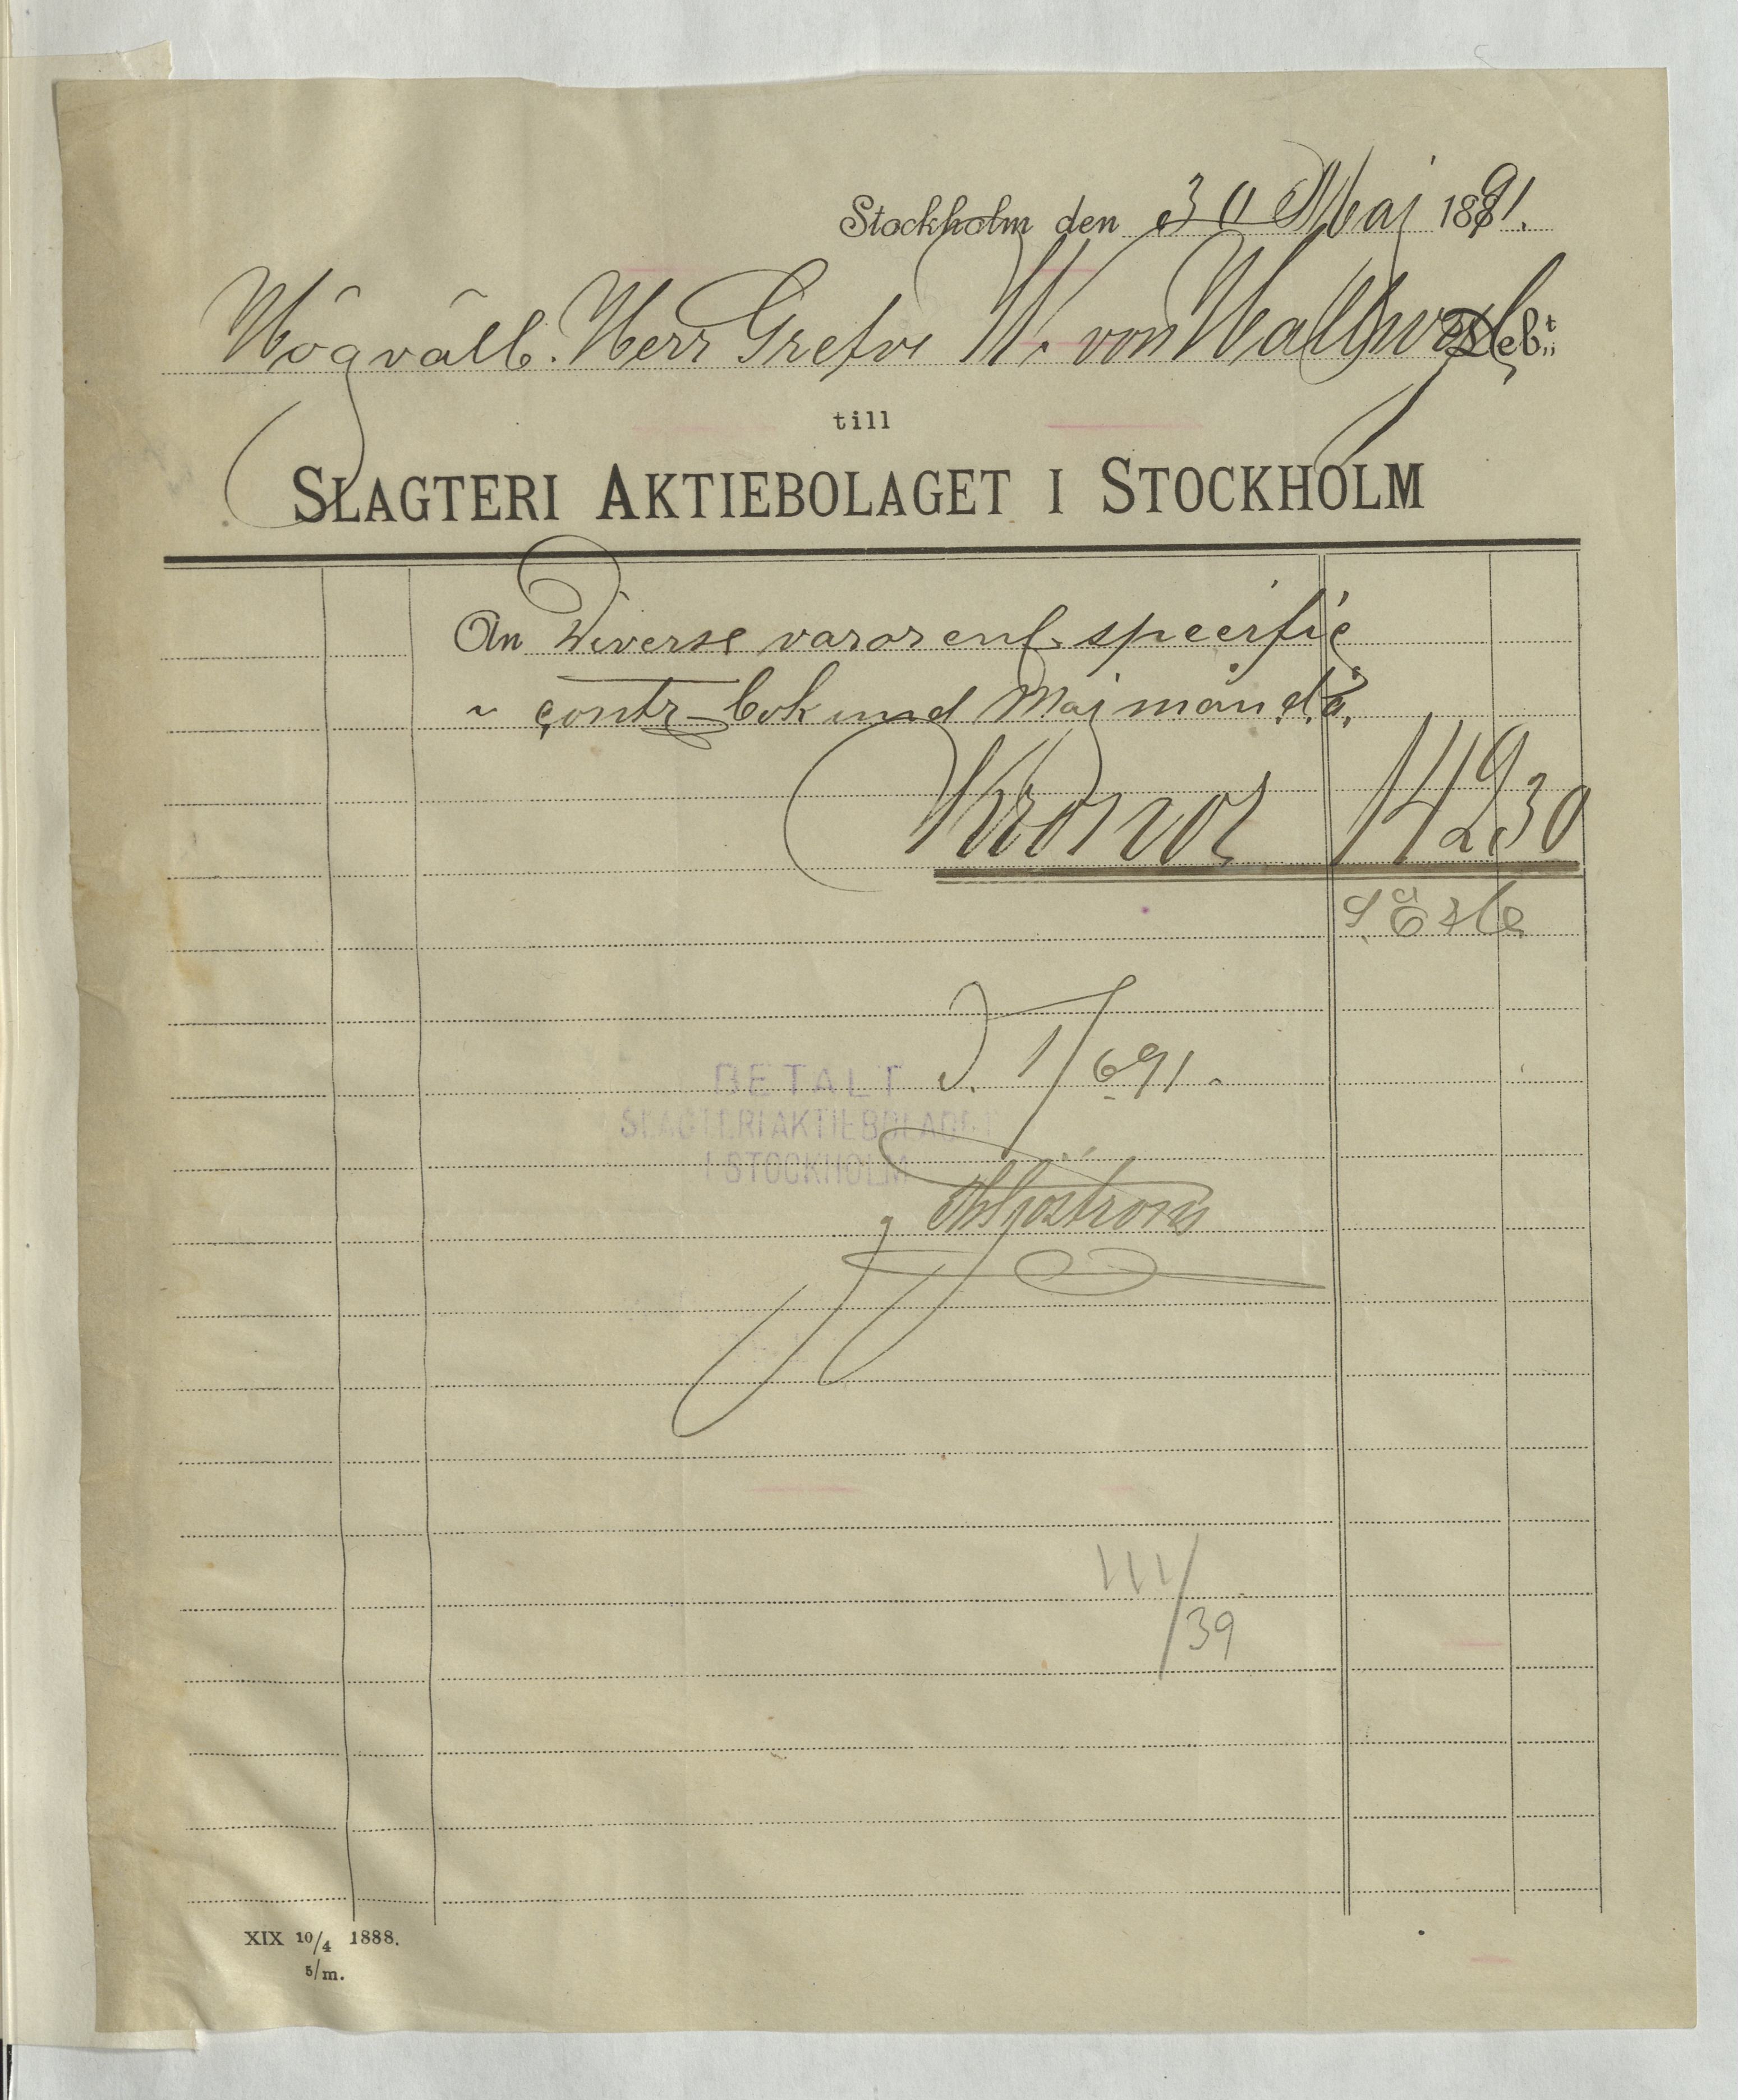 Stockholm den 30 Maj 1891.
Högvälb. Herr Grefve W. von Hallwyl Deb:t
till
SLAGTERI AKTIEBOLAGET I STOCKHOLM
An Diverse varor enl. specific
" contr bok und Maj månd.
Kronor 149 30
d. 1/6 91.
BETALT
SLAGTERIAKTIEBOLAGET
I STOCKHOLM
Sjöström
111/39
XIX 10/4 1888.
5/m.